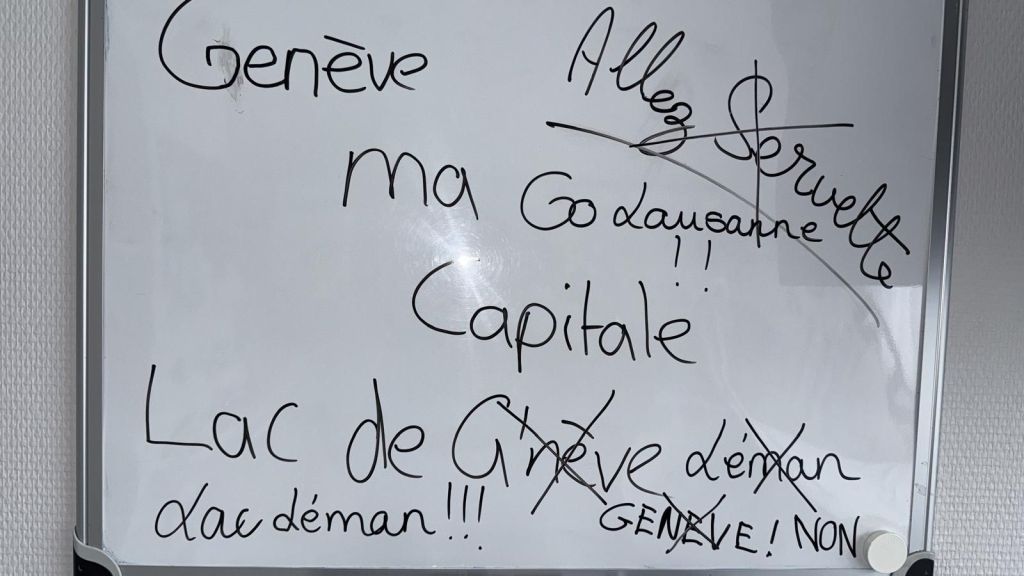 Genève
Allez Servette
ma
Go Lausanne
!!
Capitale
Lac de Genève Léman
Lac Léman!!!
GENÈVE! NON